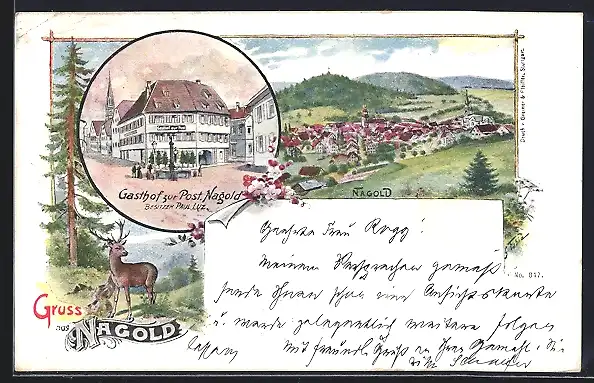 Gasthof zur Post, Nagold
BESITZER PAUL LUZ.
NAGOLD
Druck v. Greiner & Pfeiffer, Stuttgart.
No. 847.
Gruss
aus
NAGOLD
Geehrte Frau Rogg!
Meinem Versprechen gemäß
sende Ihnen schon eine Ansichtskarte
u. werde gelegentlich weitere folgen
lassen. Mit freundl. Gruß an Ihren Gemahl